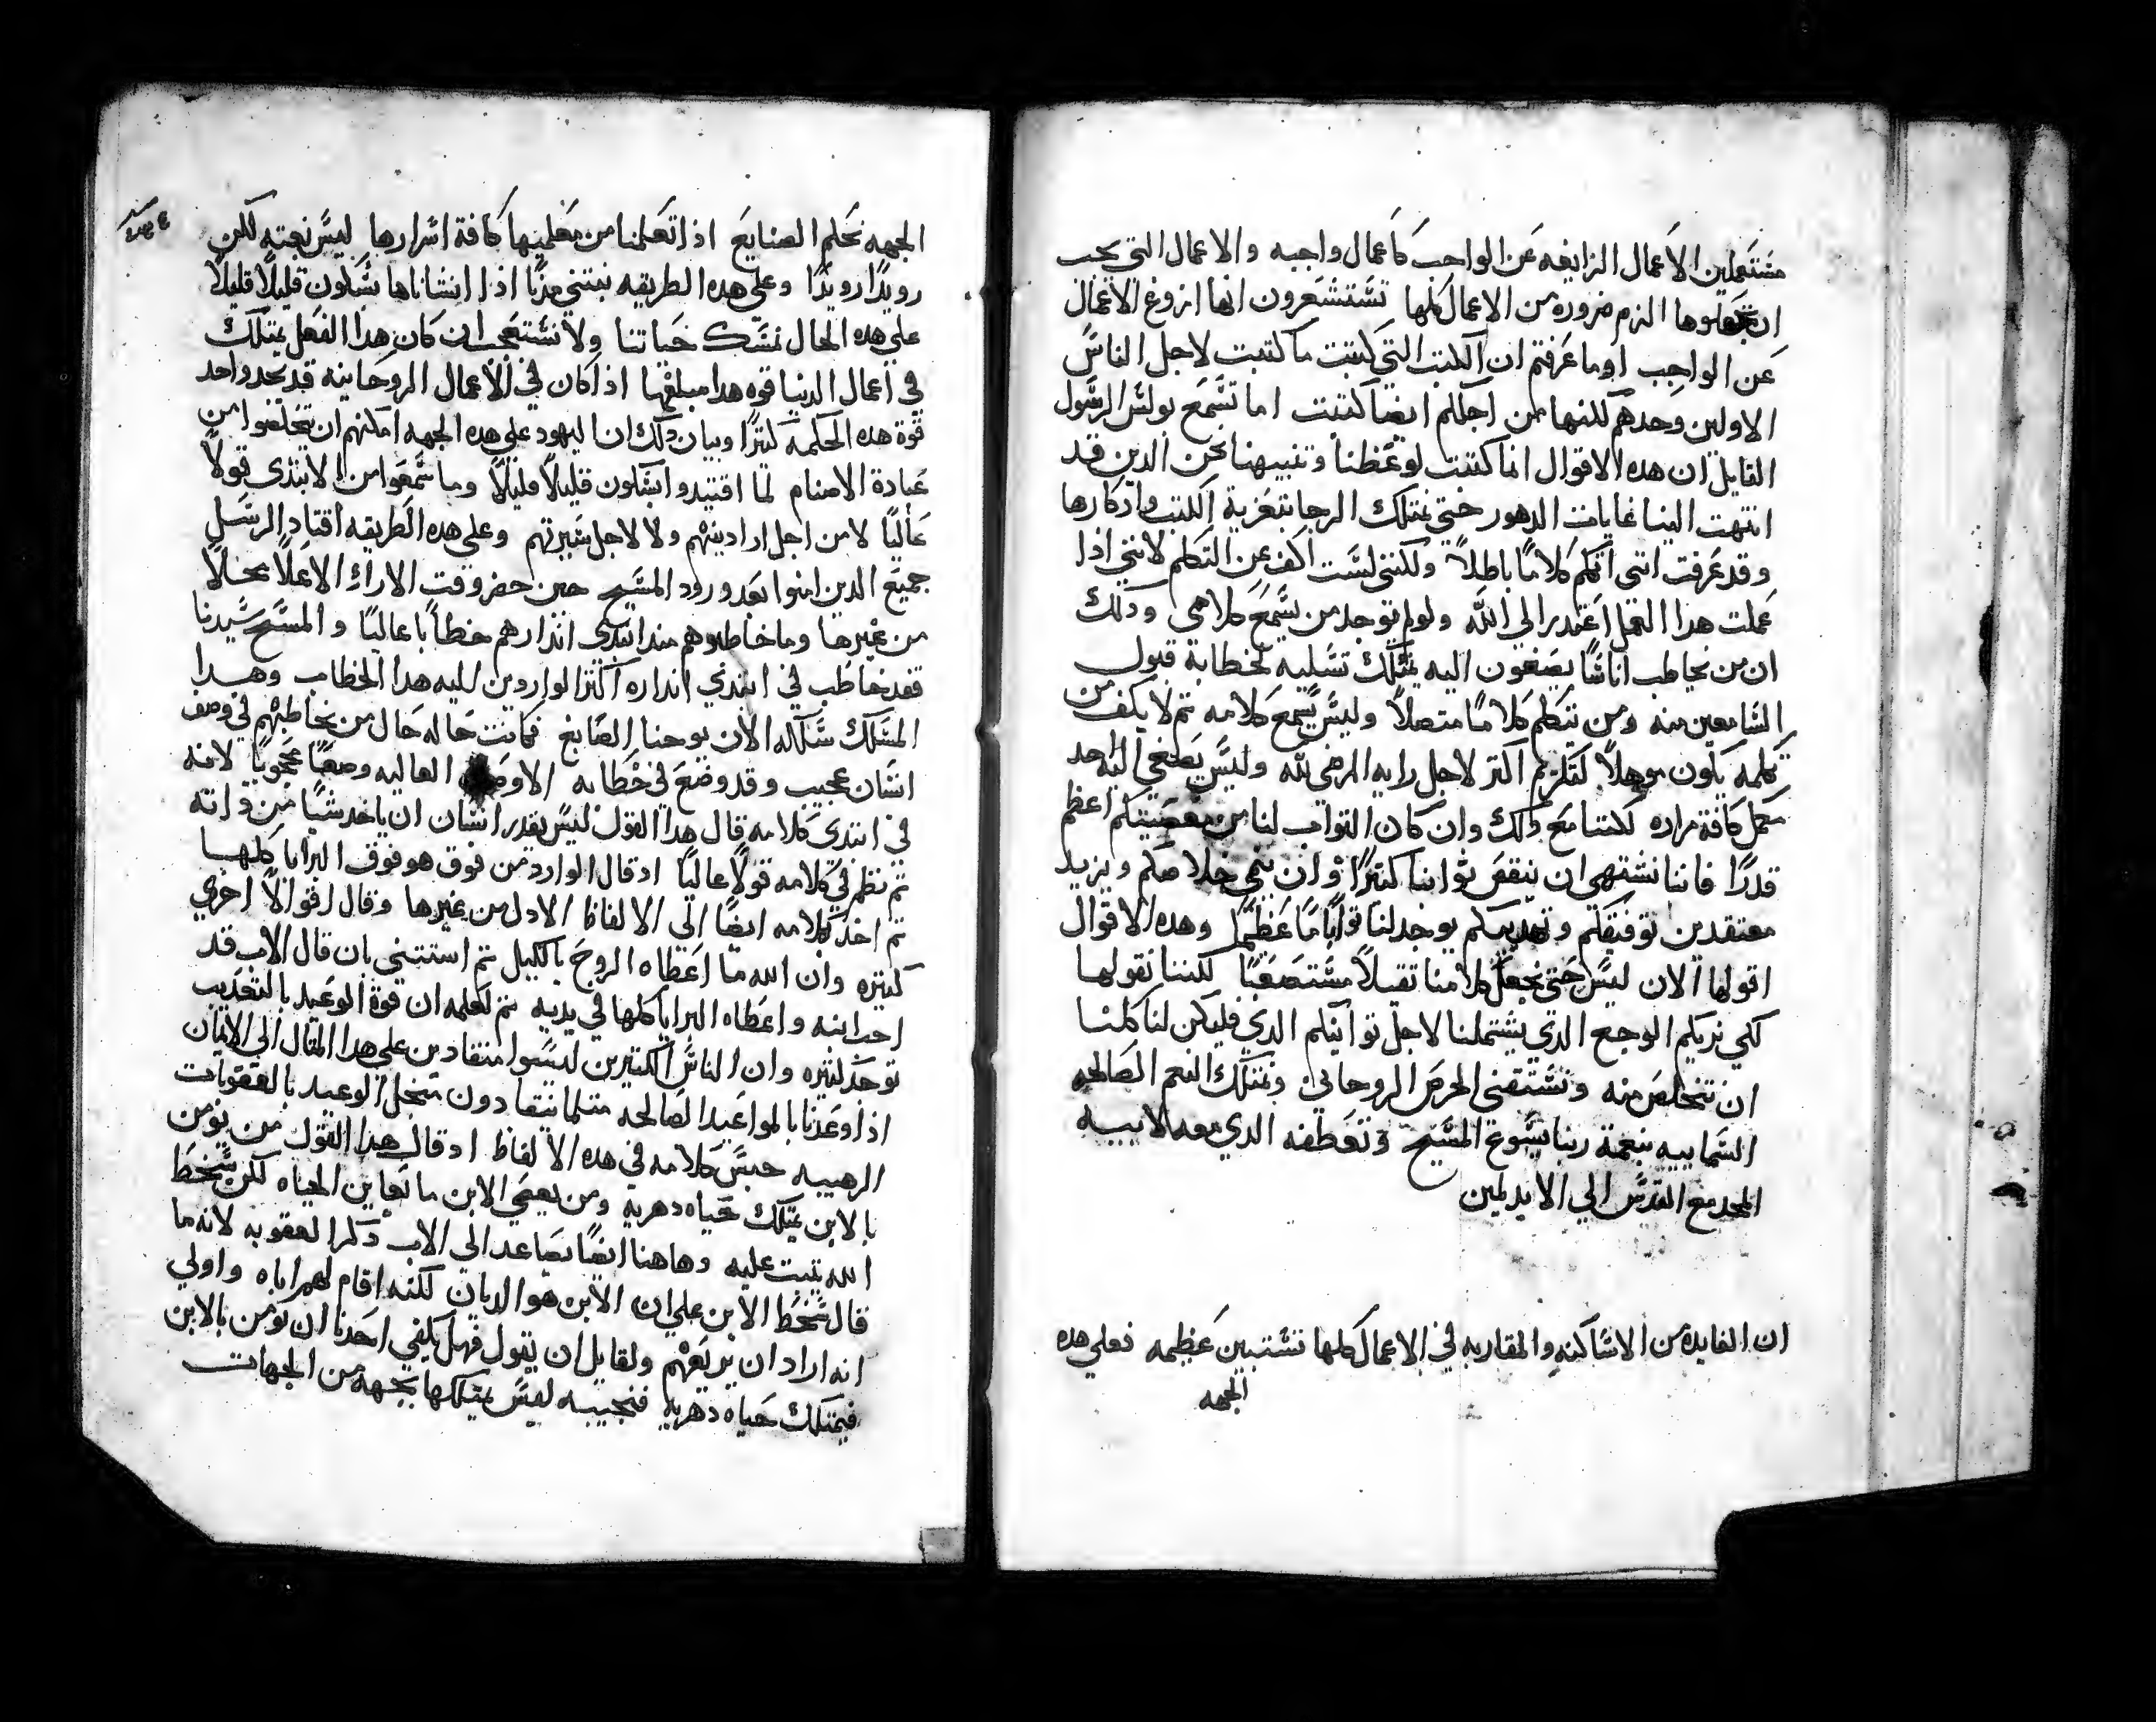 مشتعملين الاعمال الزايغه عن الواجب كاعمال واجبه والاعمال التي يجب
ان تجعلوها الزم ضروره من الاعمال كلها تستشعرون انها ازوغ الاعمال
عن الواجب اوما عرفتم ان الكتب التي كتبت ما كتبت لاجل الناس
الاولين وحدهم لكنها من اجلكم ايضا كتبت اما تسمع بولس الرسول
القايل ان هده الاقوال انما كتبت لوعظنا وتنبيهنا نحن الدين قد
انتهت الينا غايات الدهور حتي نمتلك الرجا بتعزية الكتب وادكارها
وقد عرفت انني اتكلم كلاما باطلاً ولكنني لست اكف عن التكلم لانني اذا
عملت هدا العمل اعتدر الي الله ولو لم توجد من يسمع كلامي ودلك
ان من يخاطب اناسًا يصغون اليه يمتلك تسليه لخطابة قبول
السامعين منه ومن يتكلم كلامًا متصلاً وليس يسمع كلامه تم لا يكف من
تكلمه يكون موهلاً لتكريم اكتر لاجل رايه المرضي لله وليس يصغي اليه احد
مكمل كافة مراده لكننا مع دلك وان كان التواب لنا من معصيتكم اعظم
قدرًا فاننا نشتهي ان ينقص توابنا كتيرًا وان ينمي خلاصكم ويزيد
معتقدين توفيقكم وتهديبكم يوجد لنا توابًا عظيمًا وهده الاقوال
اقولها الان ليس حتي نجعل كلامنا تقيلاً مستصعبًا لكننا نقولها
لكي نريكم الوجع الدي يشتملنا لاجل توانيكم الدي فليكن لنا كلنا
ان نتخلص منه ونستقني الحرص الروحاني ونمتلك النعم الصالحه
السماييه بنعمة ربنا يسوع المسيح وتعطفه الدي معه لابيه
المجد مع القدس الي الابد امين
ان الفايده من الاساكنه والمقاربه في الاعمال كلها تستبين عظيمه فعلي هده
الجهه
الجهه نحكم الصنايع ادا تعلمنا من معلميها كافة اسرارها ليس بغته لكن
رويدًا رويدًا وعلي هده الطريقه نبتني مدنًا ادا انشاناها بسكون قليلاً قليلاً
علي هده الحال نمسك حياتنا ولا نستعجب ان كان هدا الفعل يمتلك
في اعمال الدنيا قوه هدا مبلغها اذا كان في الاعمال الروحانيه قد يجد واحد
قوة هده الحكمه كتيرًا وبيان دلك ان اليهود علي هده الجهه امكنهم ان يتخلصوا من
عبادة الاصنام لما اقتيدوا بسكون قليلاً قليلاً وما سمعوا من الابتدي قولاً
عاليًا لا من اجل ارا دينهم ولا لاجل سيرتهم وعلي هده الطريقه اقتاد الرسل
جميع الدين امنوا بعد ورود المسيح حين حضر وقت الاراء الاعلا محالاً
من غيرها وما خاطبوهم مند ابتدي اندارهم خطابا عاليًا والمسيح سيدنا
فقد خاطب في ابتدي انداره اكتر الواردين اليه هدا الخطاب وهدا
المسلك سلكه الان يوحنا الصابغ فكانت حاله حال من يخاطبهم في وصف
انسان عجيب وقد وضع في خطابه الاوصاف العاليه وصفًا محجوبًا لانه
في ابتدي كلامه قال هدا القول ليس يقدر انسان ان ياخد شيا من داته
تم نظم في كلامه قولاً عاليًا اد قال الوارد من فوق هو فوق البرايا كلها
تم اخد كلامه ايضًا الي الالفاظ الادل من غيرها وقال اقوالاً اخري
كتيره وان الله ما اعطاه الروح بالكيل تم استتني بان قال الاب قد
احب ابنه واعطاه البرايا كلها في يديه تم لعلمه ان قوة الوعيد بالتعديب
توجد كتيره وان الناس الكتيرين ليسوا منقادين علي هدا المتال الي الايمان
اذا وعدنا بالمواعيد الصالحه متلما ينقادون متحيل الوعيد بالعقوبات
الرهيبه حبس كلامه في هده الالفاظ اد قال هدا القول من يومن
بالابن يمتلك حياه دهريه ومن يعصي الابن ما يعاين الحياه لكن سخط
الله يتبت عليه وهاهنا ايضًا يصاعد الي الاب دكر العقوبه لانه ما
قال سخط الابن علي ان الابن هو الديان لكنه اقام لهم اباه واولي
انه اراد ان يريعهم ولقايل ان يقول فهل يكفي احدنا ان تومن بالابن
فيمتلك حياه دهريه فنجيبه ليس يمتلكها بجهه من الجهات